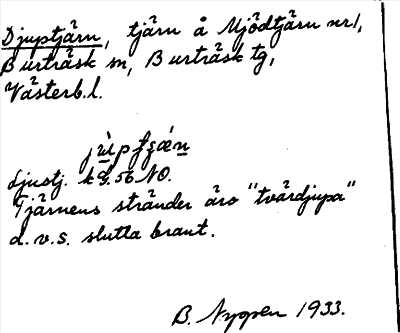 Djuptjärn, tjärn å Mjödtjärn nr1,
Burträsk sn, Burträsk tg,
Västerb.l.
Ljustj. k 56 NO.
Tjärnens stränder äro "tvärdjupa"
d.v.s. slutta brant.
B. Nyppen 1933.